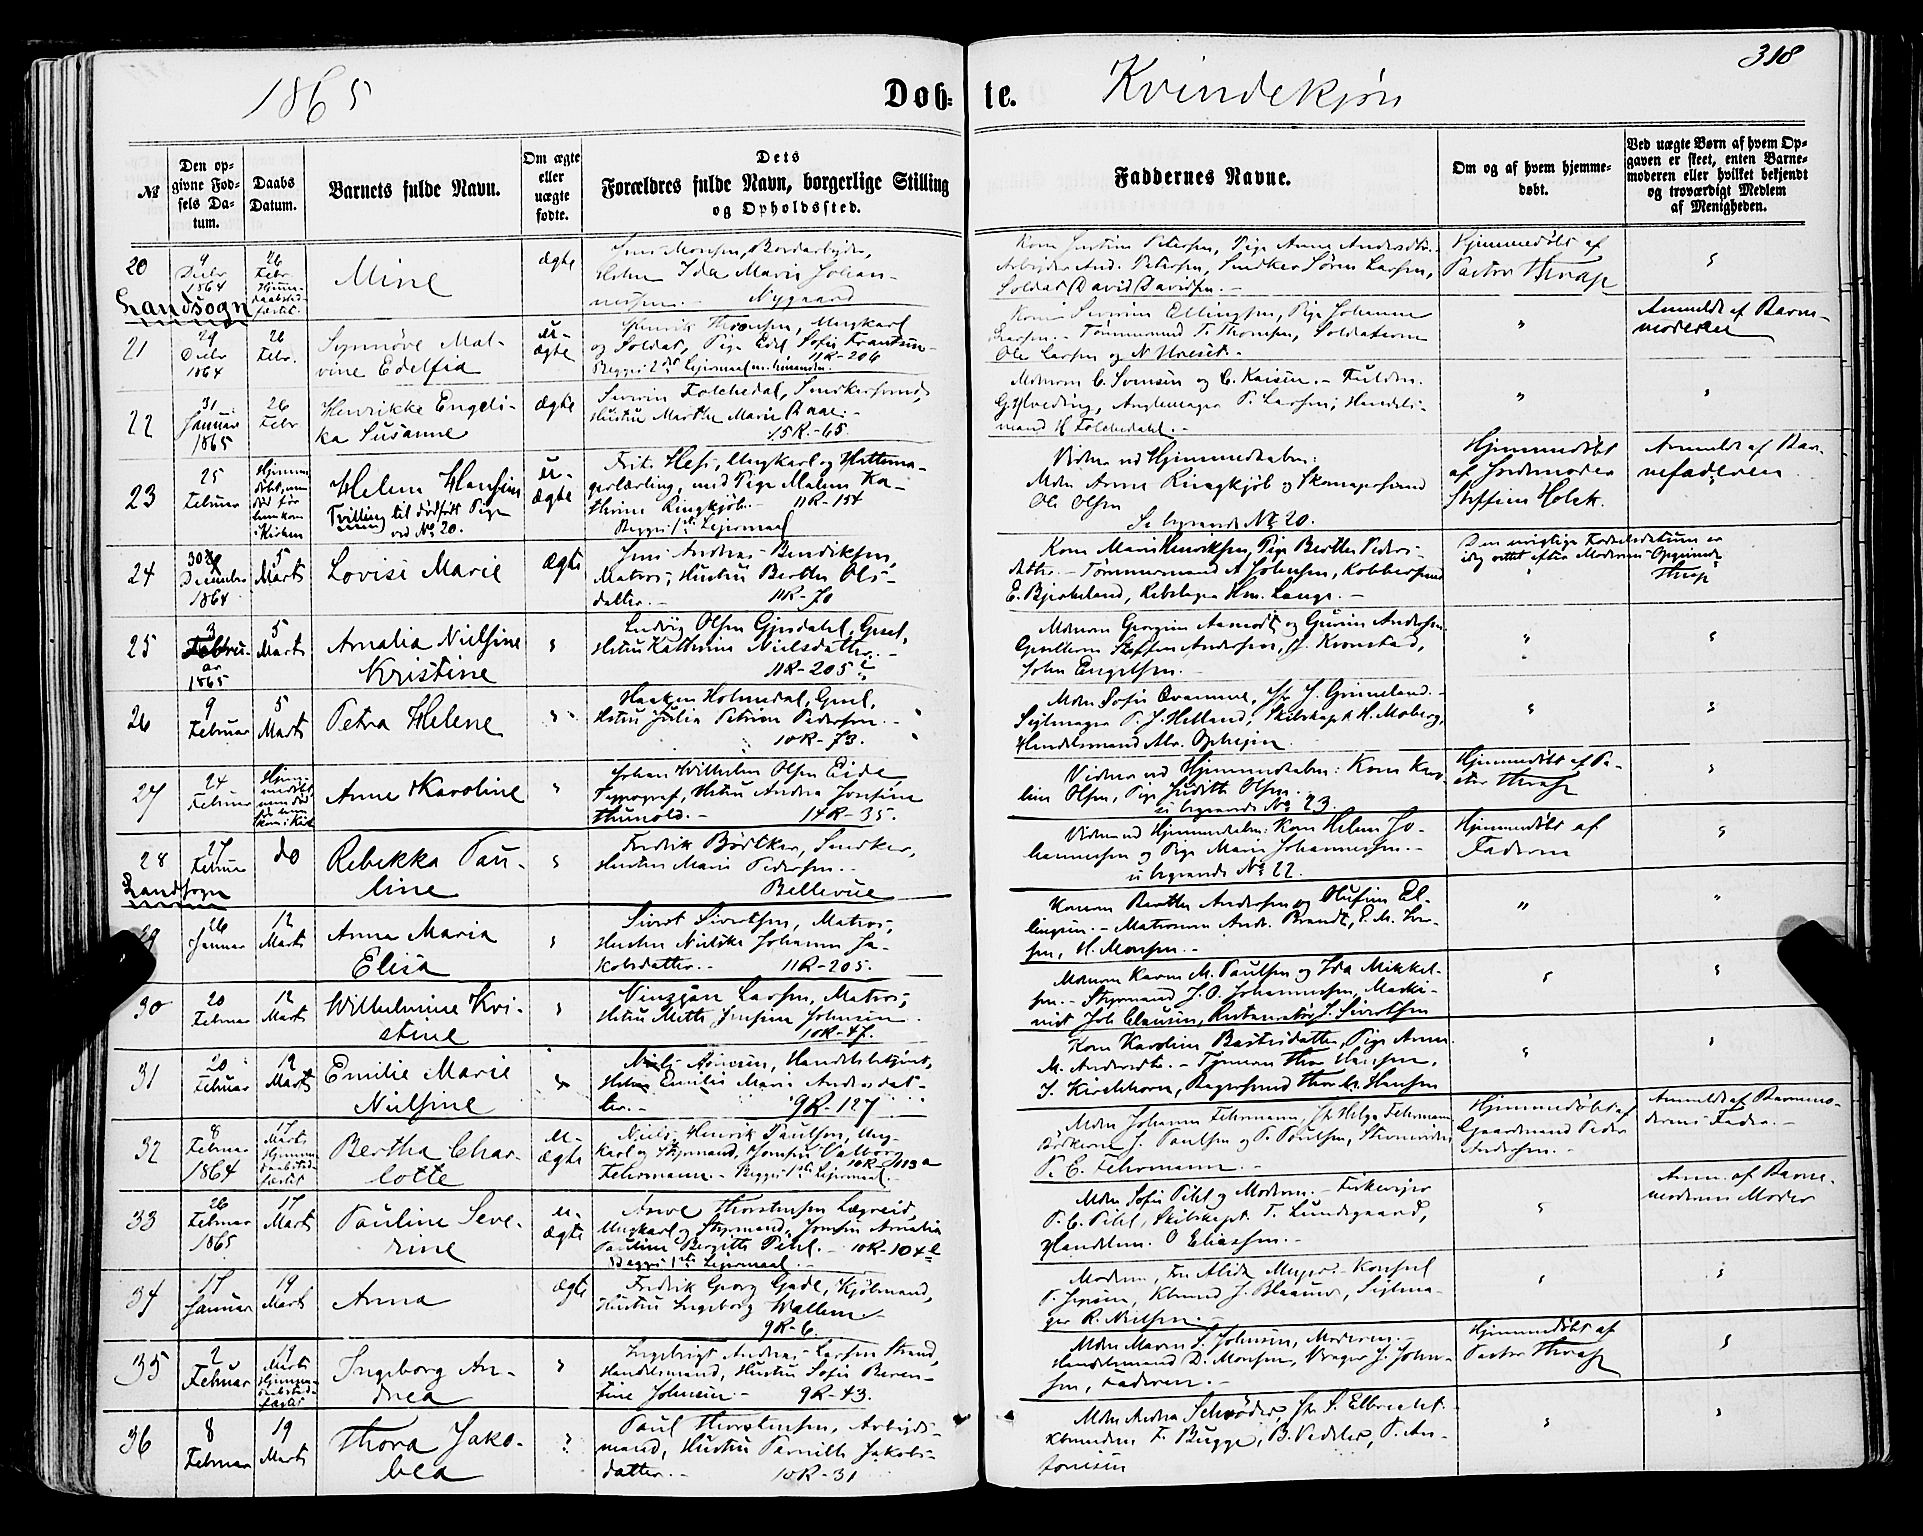 1865
Døb- te.
Kvindekjøn
318
No
Den op-
givne Fød-
sels Da-
tum.
Daabs
Datum.
Barnets fulde Navn.
Om ægte
eller
uægte
fødte.
Dets
Forældres fulde Navn, borgerlige Stilling
og Opholdssted.
Faddernes Navne.
Om og af hvem hjemme-
døbt.
Ved uægte Børn af hvem Op-
gaven er skeet, enten Barne-
moderen eller hvilket bekjendt
og troværdigt Medlem
af Menigheden.
20
Decbr
1864
26
Febr
Mine
ægte
Jens Monsen, Bordarbeider,
Ida Marie Johan-
nessen.- Nygaard
Kone Petersen, Pige Anne
Arbeider And. Petersen, Snedker Søren Larsen,
Soldat David Davidsen.-
Hjemmedøbt af
Pastor Thrap
Landsogn
21
29
Decbr
1864
26
Febr.
Synnøve Mal-
vine Edelfia
u-
ægte
Henrik Thomsen, Ungkarl
og Soldat, Pige Edel Sofie Frantsen
11R-206
Kone Severine Ellingsen, Pige Johanne
Larsen.- Tømmermand T. Thomsen, Soldaterne
Ole Larsen og N
Anmeldt af Barne-
moderen
22
31
Januar
1865
26
Febr
Henrikke Engeli-
ka Susanne
ægte
Severin Folkedal, Snedkersvend,
Hustru Marthe Marie Aase.-
15R.-65.
Mdmm C. Svensen og C. Kaisen.-
P. Larsen, Handels-
mand H. Folkedahl.-
23
25
Februar
Hjemme
døbt, men
død før
hun kom
i Kirken
Helene Hansine
Tvilling til dødfødt Pige
ved No 20.
u-
ægte
Frits Hess, Ungkarl og Hattema-
gerlærling, med Pige Malene Ka-
thrine Ringkjøb.- 11R-154
Begges 1ste Leiermaal
Vidner ved Hjemmedaaben:
Mdm Anne Ringkjøb og Skomagersvend
Ole Olsen
Se begravede No 20.
Hjemmedøbt
af Jordemoder
Steffine Holck.
Anmeldt af Bar-
nefaderen
24
30
December
1864
5
Marts
Lovise Marie
ægte
Jens Andreas Bendiksen,
Matros, Hustru Berthe Ols-
datter.- 11R-70
Kone Marie Henriksen, Pige Berthe Peders-
datter.- Tømmermand A Johnsen, Kobbersmed
E. Bjørkeland, Rebslager Hm. Lange.-
Den urigtige Fødselsdatum er
idag rettet efter Moderens Opgivende
Thrap
25
3
Febru-
ar
1865
5
Marts
Amalia Nielsine
Kristine
Ludvig Olsen Gjesdahl, Gesel,
Hustru Kathrine Nielsdatter.-
11R-205
Mdmm Georgine Aamodt og Gurine Andersen
Gesellerne Steffen Andersen, J. Kronstad,
John Engelsen.-
26
9
Februar
5
Marts
Petra Helene
Haaken Holmedal, Gesel,
Hstru Julia Petrine Pedersen.-
10R-73.
Mdm Sofie Evanmne, Jfr J. Grimeland.-
Seglmager P. J. Helland, Skibskapt H. Moberg,
Handelsmand
27
24
Februar
Anne Karoline
Johan Wilhelm Olsen Eide
Typograf, Hstru Andrea Josefine
Thunold.- 14R-35.
Vidner ved Hjemmedaaben: Kone Karo-
line Olsen, Pige Judithe Olsen
se begravede No 23.
Hjemmedøbt af Pa-
stor Thrap
28
27
Februar
do
Rebekka Pau-
line
Fredrik Bödtker, Snedker,
Hustru Marie Pedersen.-
Bellevue
Vidner ved Hjemmedaaben: Kone Helene Jo-
hannessen og Pige Marie Johannessen.-
se begravede No 22.
Hjemmedøbt af
Faderen
Landsogn
29
26
Januar
12
Marts
Anna Maria
Elisa
Sivert Sivertsen, Matros,
Hustru Nilska Johanne Ja-
kobsdatter.- 11R-205.
Konerne Berthe Andersen og Olufine El-
lingsen.- Matroserne Andr. Brandt, E. M. Iver-
sen, H. Monsen.-
30
20
Februar
12
Marts
Wilhelmine Kri-
stine
Larsen, Matros,
Hstru Mette Josefine Johnsen
10R-47.
Mdmm Karen M. Paulsen og Ida Mikkel-
sen.- Styrmand J. O. Johannessen, Maski-
nist Joh Clausen, J. Sivertsen
31
20
Februar
12
Marts
Emilie Marie
Nielsine
Niels Asmesen, Handelsbetjent,
Hstru Emilie Marie Andersdat-
ter.- 9R-127
Kone Karoline Bastesdatter, Pige Anne
M. Andersdtr.- Thor Hanssen,
I. Kirckhorn, Bagersvend Thor M. Hansen
32
8
Februar
1864
17
Marts
Bertha Char-
lotte
u-
ægte
Niels Henrik Paulsen, Ung-
karl og Styrmand, Josefine Valborg
Fehrmann.- Begges 1ste Leiermaal.-
10R-113a
Mdm Johanne Fehrmann, Jfr Helga Fehrmann
Bødkerne J. Paulsen og P. Paulsen, Skomager
P. C. Fehrmann.-
Hjemmedøbt af
Gaardmand Peder
Andersen.-
Anmeldt af Barnemo-
derens Fader.-
33
26
Februar
1865
17
Marts
Pauline Seve-
rine
u-
ægte
Anve Thorstensen Lægreid,
Ungkarl og Styrmand, Josefine Amalia
Pauline Bergitte Pihl.- 10R-104
Begges 1ste Leiermaal.-
Mdm Sofie Pihl og Moderen.- Fiskeveier
P. C. Pihl, Skibskapt. T. Lundegaard,
Handelsm. O Eliassen.-
Anm. af Barne-
moderens Moder
34
17
Januar
19
Marts
Anna
ægte
Fredrik Georg Gade, Kjøbmand,
Hustru Ingeborg Wallem.-
9R-6.
Moderen, Fru Alida Meyer.- Konsul
P. Jepsen, Kbmnd J. Blaauw, Seglma-
ger R. Nielsen.-
35
2
Februar
19
Marts
Ingeborg An-
drea
Ingebrigt Andreas Larsen Strand,
Handelsmand, Hustru Sofie Beren-
tine Johnsen.- 9R-43.
Mdm Maren S. Johnsen, Moderen.-
Handelsmand D. Monsen, Vrager J. John-
sen, Faderen.-
Hjemmedøbt af
Pastor Thrap
36
8
Februar
19
Marts
Thora Jako-
bea
Paul Thorstensen, Arbeids-
mand, Hustru Pernille Jakobs-
datter.- 10R-31
Mdm Andrea Schrøder, Jfr S. Elbrecht.-
Kbmndene F. Bugge, B. Vedeler, P. An-
tonisen